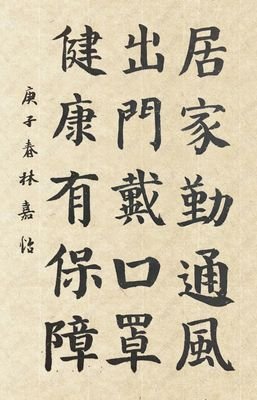 居家勤通風
出門戴口罩
健康有保障
庚子春林嘉怡